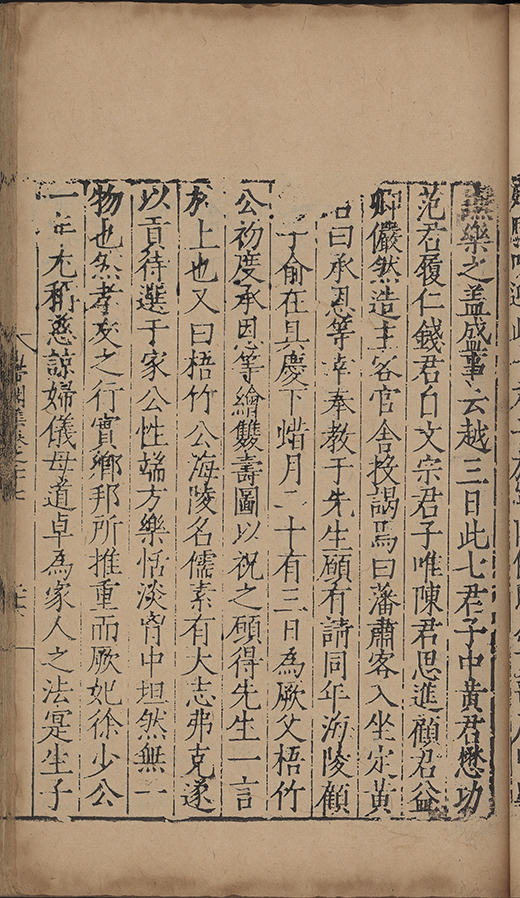 樂之盖成事云越三日此七君子中黄君懋功
范君履仁錢君白文宗君子唯陳君思進顧君益
卿儼然造主客官舍投謁焉曰藩肅客入坐定黄
君曰承恩等幸奉教于先生願有請同年海陵顧
子俞在具慶下惜月二十有三日為厥父梧竹
公初度承恩等繪雙壽圖以祝之願得先生一言
於上也又曰梧竹公海陵名儒素有大志弗克遂
以貢待選于家公性端方樂恬淡胷中坦然無一
物也然孝友之行實鄉邦所推重而厥妃徐少公
一年尤稱慈諒婦儀母道卓為家人之法寔生子
集卷之十七